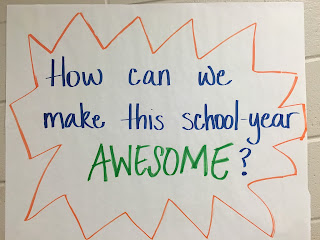 How can we
make this school-year
AWESOME?